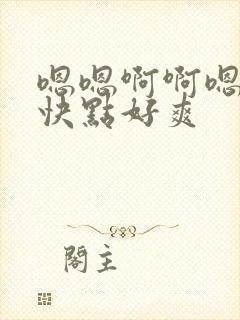 嗯嗯啊啊嗯
快點好爽
閣主